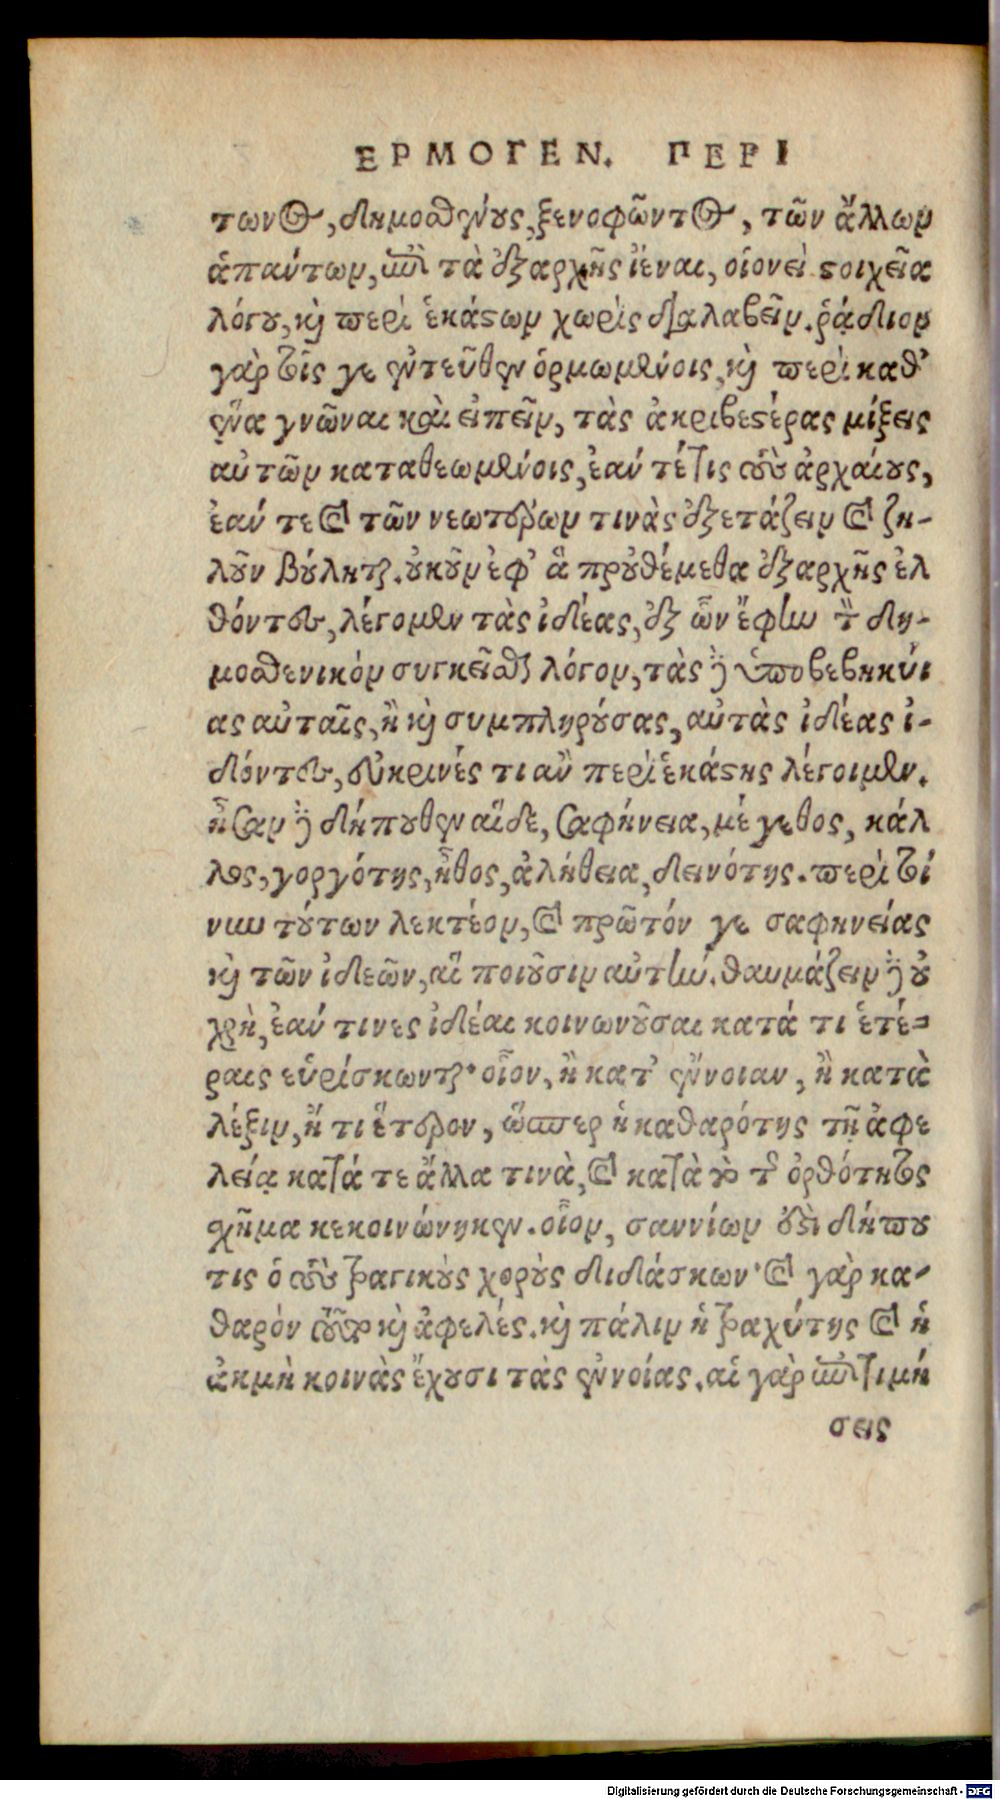 ΕΡΜΟΓΕΝ. ΠΕΡΙ
τωνος, δημοσθένους, ξενοφῶντος, τῶν ἄλλων
ἁπάντων, ἐπὶ τὰ ἐξαρχῆς ἰέναι, οἱονεὶ στοιχεῖα
λόγου, καὶ περὶ ἑκάστων χωρὶς διαλαβεῖν. ῥᾴδιον
γὰρ τοῖς γε ἐντεῦθεν ὁρμωμένοις, καὶ περὶ καθ’
ἕνα γνῶναι καὶ εἰπεῖν, τὰς ἀκριβεστέρας μίξεις
αὐτῶν καταθεωμένοις, ἐάν τέ τις τοὺς ἀρχαίους,
ἐάν τε καὶ τῶν νεωτέρων τινὰς ἐξετάζειν καὶ ζη-
λοῦν βούληται. οὐκοῦν ἐφ’ ἃ προὐθέμεθα ἐξαρχῆς ἐλ
θόντες, λέγομεν τὰς ἰδέας, ἐξ ὧν ἔφην τὸν δη-
μοσθενικὸν συγκεῖσθαι λόγον, τὰς δὲ ὑποβεβηκυί
ας αὐταῖς, ἢ καὶ συμπληρούσας, αὐτὰς ἰδέας ἰ-
δόντες, εὐκρινές τι ἂν περὶ ἑκάστης λέγοιμεν.
ἦσαν δὲ δήπουθεν αἵδε, σαφήνεια, μέγεθος, κάλ
λος, γοργότης, ἦθος, ἀλήθεια, δεινότης. περὶ τοί
νυν τούτων λεκτέον, καὶ πρῶτόν γε σαφηνείας
καὶ τῶν ἰδεῶν, αἳ ποιοῦσιν αὐτήν. θαυμάζειν δὲ οὐ
χρὴ, ἐάν τινες ἰδέαι κοινωνοῦσαι κατά τι ἑτέ-
ραις εὑρίσκωνται· οἷον, ἢ κατ’ ἔννοιαν, ἢ κατὰ
λέξιν, ἤ τι ἕτερον, ὥσπερ ἡ καθαρότης τῇ ἀφε
λείᾳ κατά τε ἄλλα τινὰ, καὶ κατὰ τὸ τῆς ὀρθότητος
σχῆμα κεκοινώνηκεν. οἷον, σαννίων ἐστὶ δήπου
τις ὁ τοὺς τραγικοὺς χοροὺς διδάσκων· καὶ γὰρ κα-
θαρόν τοῦτο καὶ ἀφελές. καὶ πάλιν ἡ τραχύτης καὶ ἡ
ἀκμὴ κοινὰς ἔχουσι τὰς ἐννοίας. αἱ γὰρ ἐπιτιμή
σεις
Digitalisierung gefördert durch die Deutsche Forschungsgemeinschaft - DFG